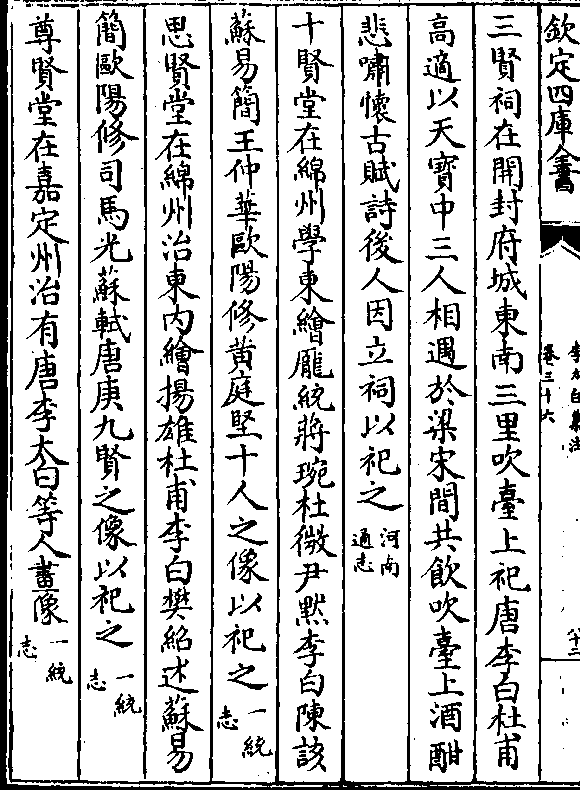 欽定四庫全書
李太白集注
卷三十六
十二
三賢祠在開封府城東南三里吹臺上祀唐李白杜甫
高適以天寶中三人相遇於梁宋間共飲吹臺上酒酣
悲嘯懷古賦詩後人因立祠以祀之河南通志
十賢堂在綿州學東繪龐統蔣琬杜微尹黙李白陳該
蘇易簡王仲華歐陽修黄庭堅十人之像以祀之一統志
思賢堂在綿州治東内繪揚雄杜甫李白樊紹述蘇易
簡歐陽修司馬光蘇軾唐庚九賢之像以祀之一統志
尊賢堂在嘉定州治有唐李太白等人畫像一統志